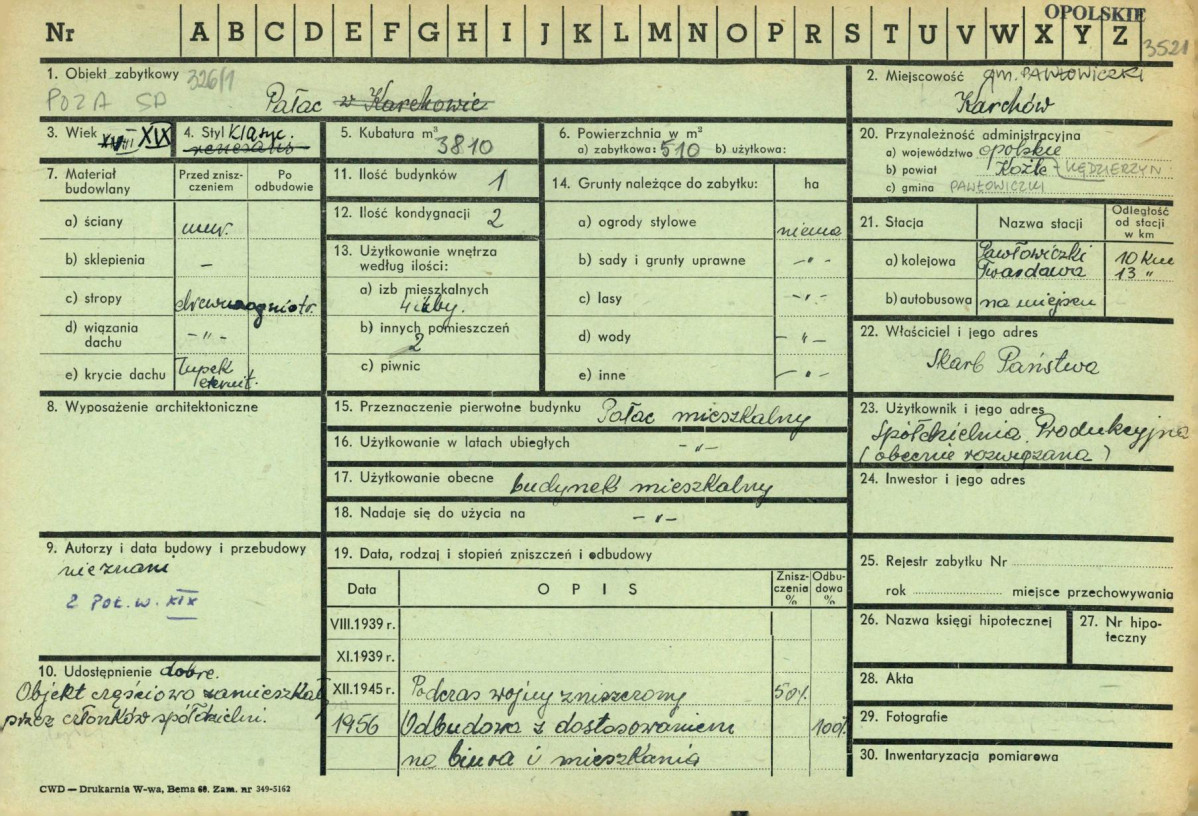 OPOLSKIE
Nr A B C D E F G H I J K L M N O P R S T U V W X Y Z 3521
1. Obiekt zabytkowy 326/1
POZA SP Pałac w Karchowie
2. Miejscowość gm. PAWŁOWICZKI
Karchów
3. Wiek XVIII XIX
4. Styl klasyc.
renesans
5. Kubatura m³
3810
6. Powierzchnia w m²
a) zabytkowa: 510 b) użytkowa:
20. Przynależność administracyjna
a) województwo opolskie
b) powiat Koźle - KĘDZIERZYN
c) gmina PAWŁOWICZKI
7. Materiał budowlany
Przed znisz-czeniem
Po odbudowie
a) ściany mur.
b) sklepienia —
c) stropy drewn. ogniotr.
d) wiązania dachu — " —
e) krycie dachu łupek eternit.
11. Ilość budynków 1
12. Ilość kondygnacji 2
13. Użytkowanie wnętrza według ilości:
a) izb mieszkalnych
4 izby.
b) innych pomieszczeń
2
c) piwnic
14. Grunty należące do zabytku: ha
a) ogrody stylowe niema
b) sady i grunty uprawne — " —
c) lasy — " —
d) wody — " —
e) inne — " —
21. Stacja Nazwa stacji Odległość od stacji w km
a) kolejowa Pawłowiczki 10 km
Twardawa 13 "
b) autobusowa na miejscu
22. Właściciel i jego adres
Skarb Państwa
8. Wyposażenie architektoniczne
15. Przeznaczenie pierwotne budynku Pałac mieszkalny
16. Użytkowanie w latach ubiegłych — " —
17. Użytkowanie obecne budynek mieszkalny
18. Nadaje się do użycia na — " —
23. Użytkownik i jego adres
Spółdzielnia Produkcyjna
(obecnie rozwiązana)
24. Inwestor i jego adres
9. Autorzy i data budowy i przebudowy
nieznani
2 POŁ. W. XIX
19. Data, rodzaj i stopień zniszczeń i odbudowy
Data OPIS Znisz-czenia % Odbu-dowa %
VIII.1939 r.
XI.1939 r.
XII.1945 r. Podczas wojny zniszczony 50%
1956 Odbudowa z dostosowaniem 100%
na biura i mieszkania
25. Rejestr zabytku Nr
rok miejsce przechowywania
26. Nazwa księgi hipotecznej
27. Nr hipo-teczny
10. Udostępnienie dobre.
Objekt częściowo zamieszkał
przez członków spółdzielni.
28. Akta
29. Fotografie
30. Inwentaryzacja pomiarowa
CWD — Drukarnia W-wa, Bema 60. Zam. nr 349-5162